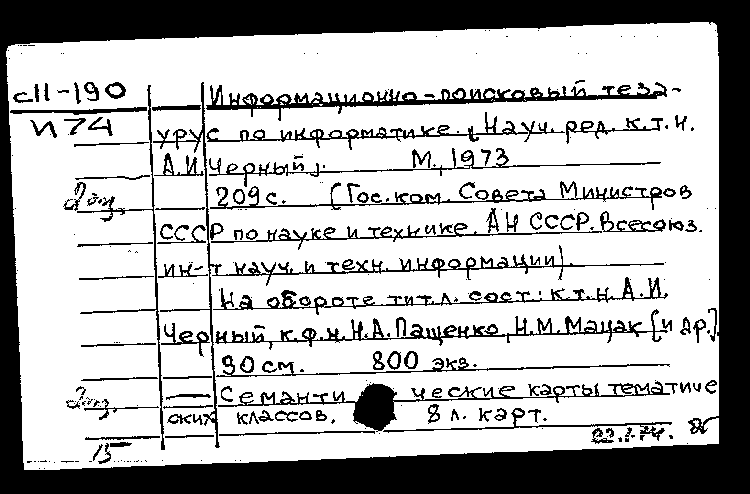 сII-190 Информационно-поисковый теза-
И74 урус по информатике. [Науч. ред. к.т.н.
А.И. Черный]. М., 1973
2 экз. 209 с. (Гос. ком. Совета Министров
СССР по науке и технике. АН СССР. Всесоюз.
ин-т науч. и техн. информации).
На обороте тит. л. сост.: к.т.н. А.И.
Черный, к.ф.н. Н.А. Пащенко, Н.М. Мацак [и др.].
30 см. 800 экз.
2 экз. — Семантические карты тематиче
ских классов. 8 л. карт.
15 22.I.74.